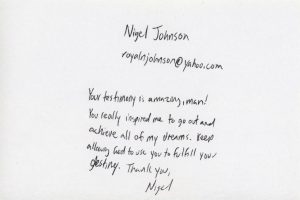 Nigel Johnson
royalnjohnson@yahoo.com
Your testimony is amazing, man!
You really inspired me to go out and
achieve all of my dreams. Keep
allowing God to use you to fulfill your
destiny. Thank you,
Nigel